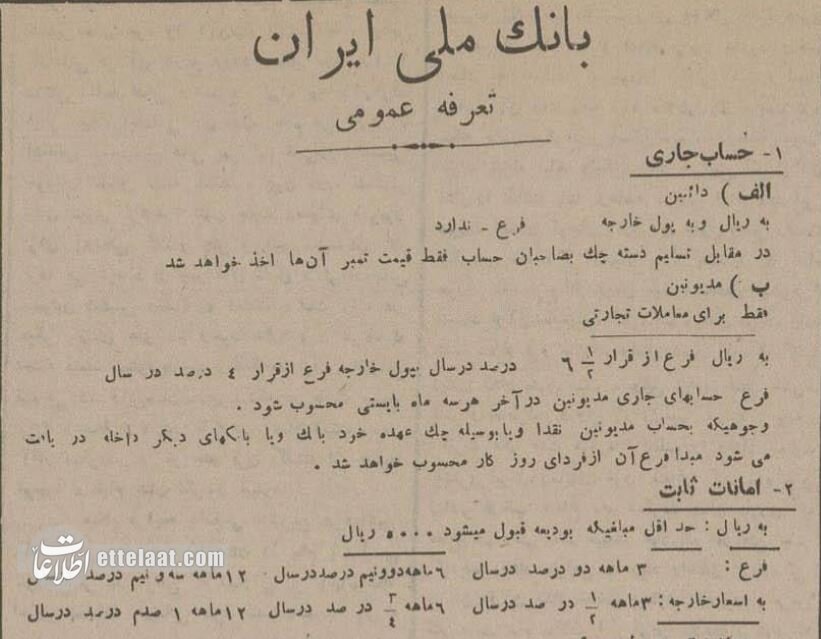 بانك ملی ایران
تعرفه عمومی
۱- حساب جاری
الف ) دائنین
به ریال وبه پول خارجه فرع - ندارد
در مقابل تسلیم دسته چك بصاحبان حساب فقط قیمت تمبر آن‌ها اخذ خواهد شد
ب ) مدیونین
فقط برای معاملات تجارتی
به ریال فرع از قرار ۶ ۱/۲ درصد درسال بپول خارجه فرع ازقرار ۴ درصد در سال
فرع حسابهای جاری مدیونین درآخر هرسه ماه بایستی محسوب شود .
وجوهیکه بحساب مدیونین نقدا ویا بوسیله چك عهده خود بانك ویا بانکهای دیگر داخله در یافت
می شود مبدا فرع آن ازفردای روز کار محسوب خواهد شد .
۲- امانات ثابت
به ریال : حد اقل مبلغیکه بودیعه قبول میشود ۵۰۰۰ ریال
فرع : ۳ ماهه دو درصد درسال ۶ماهه‌دوونیم درصددرسال ۱۲ماهه سه و نیم درصد درسال
به اسعارخارجه : ۳ماهه ۱/۲ در صد درسال ۶ماهه ۳/۴ در صد درسال ۱۲ماهه ۱ صدم درصد درسال
اطلاعات ettelaat.com